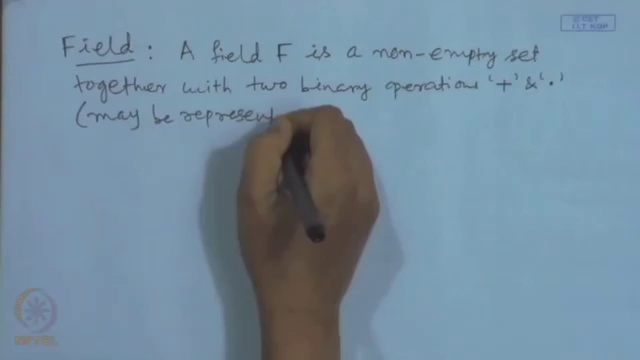 Field : A field F is a non-empty set
together with two binary operations '+' & '.'
(may be represent
© CET
I.I.T. KGP
NPTEL